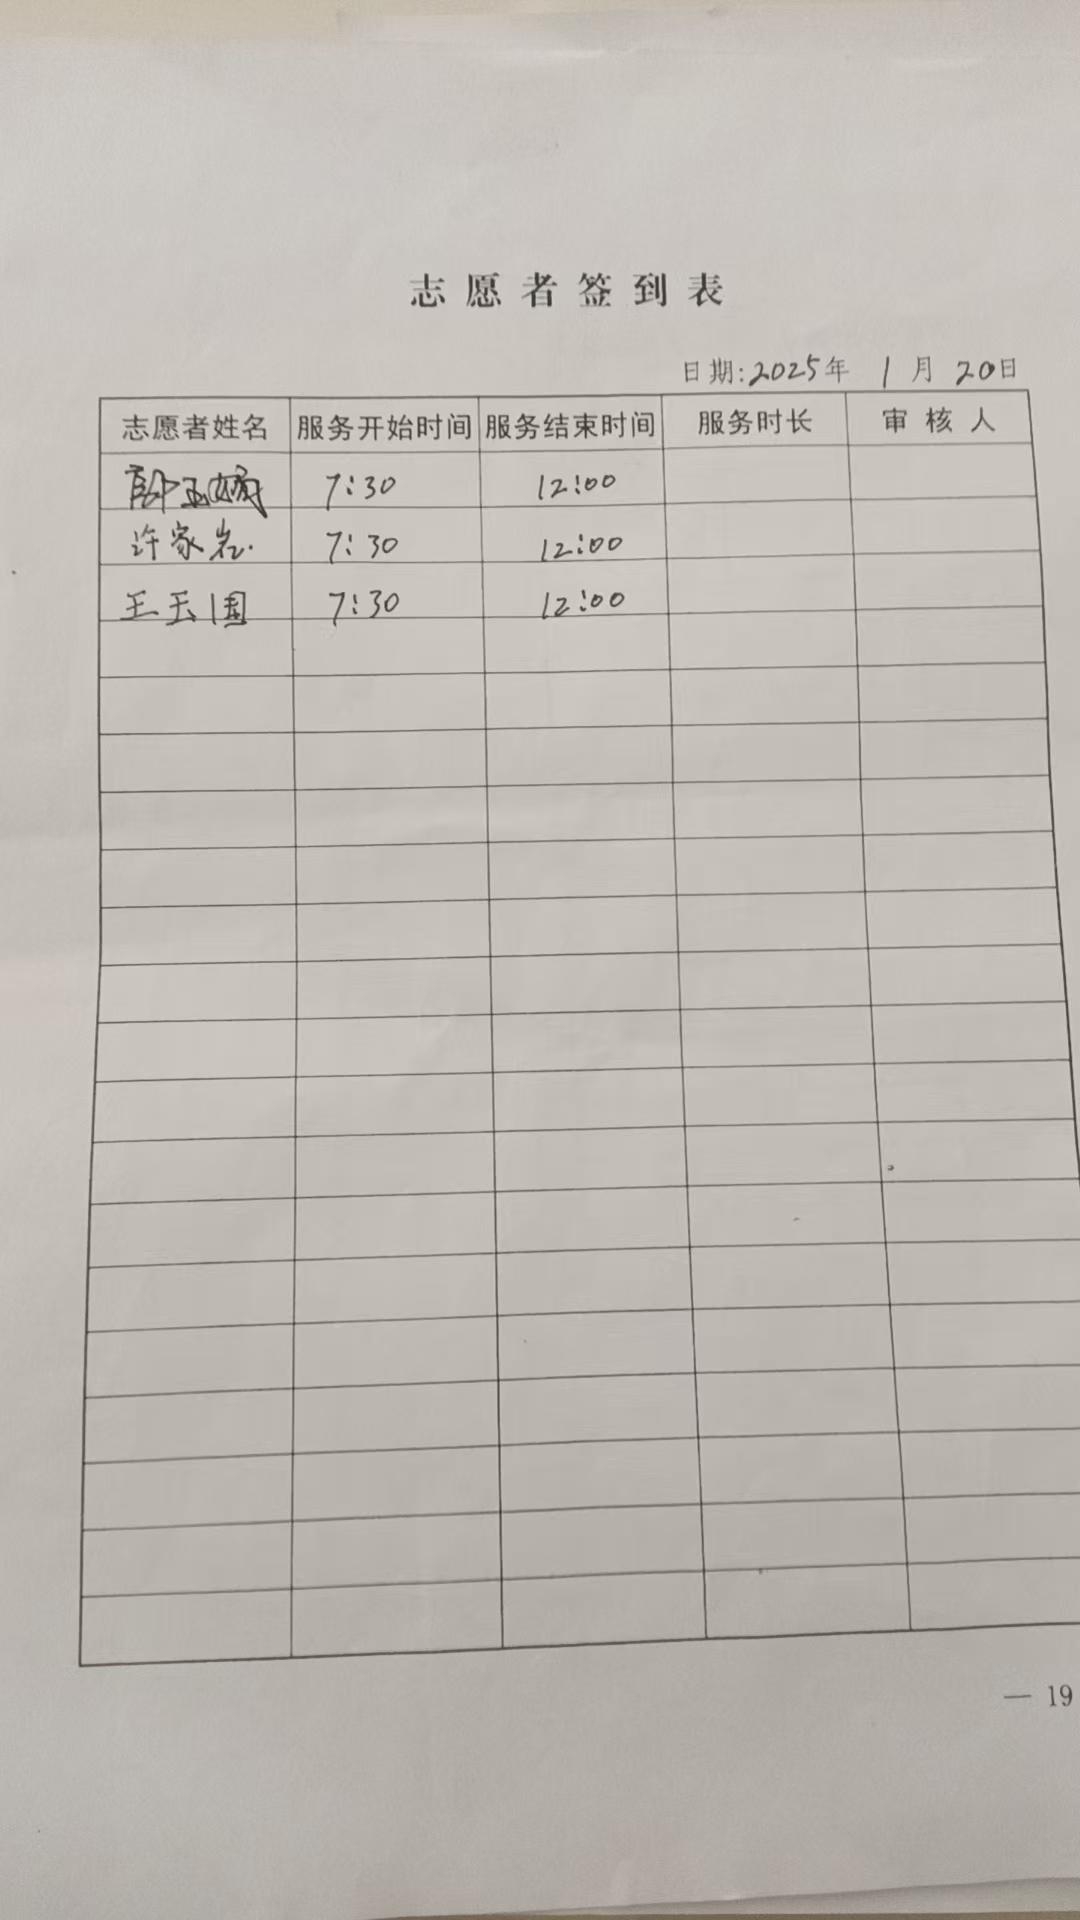 志愿者签到表
日期:2025年 1月 20日
志愿者姓名 服务开始时间 服务结束时间 服务时长 审核人
7:30 12:00
许家岩. 7:30 12:00
王玉国 7:30 12:00
— 19